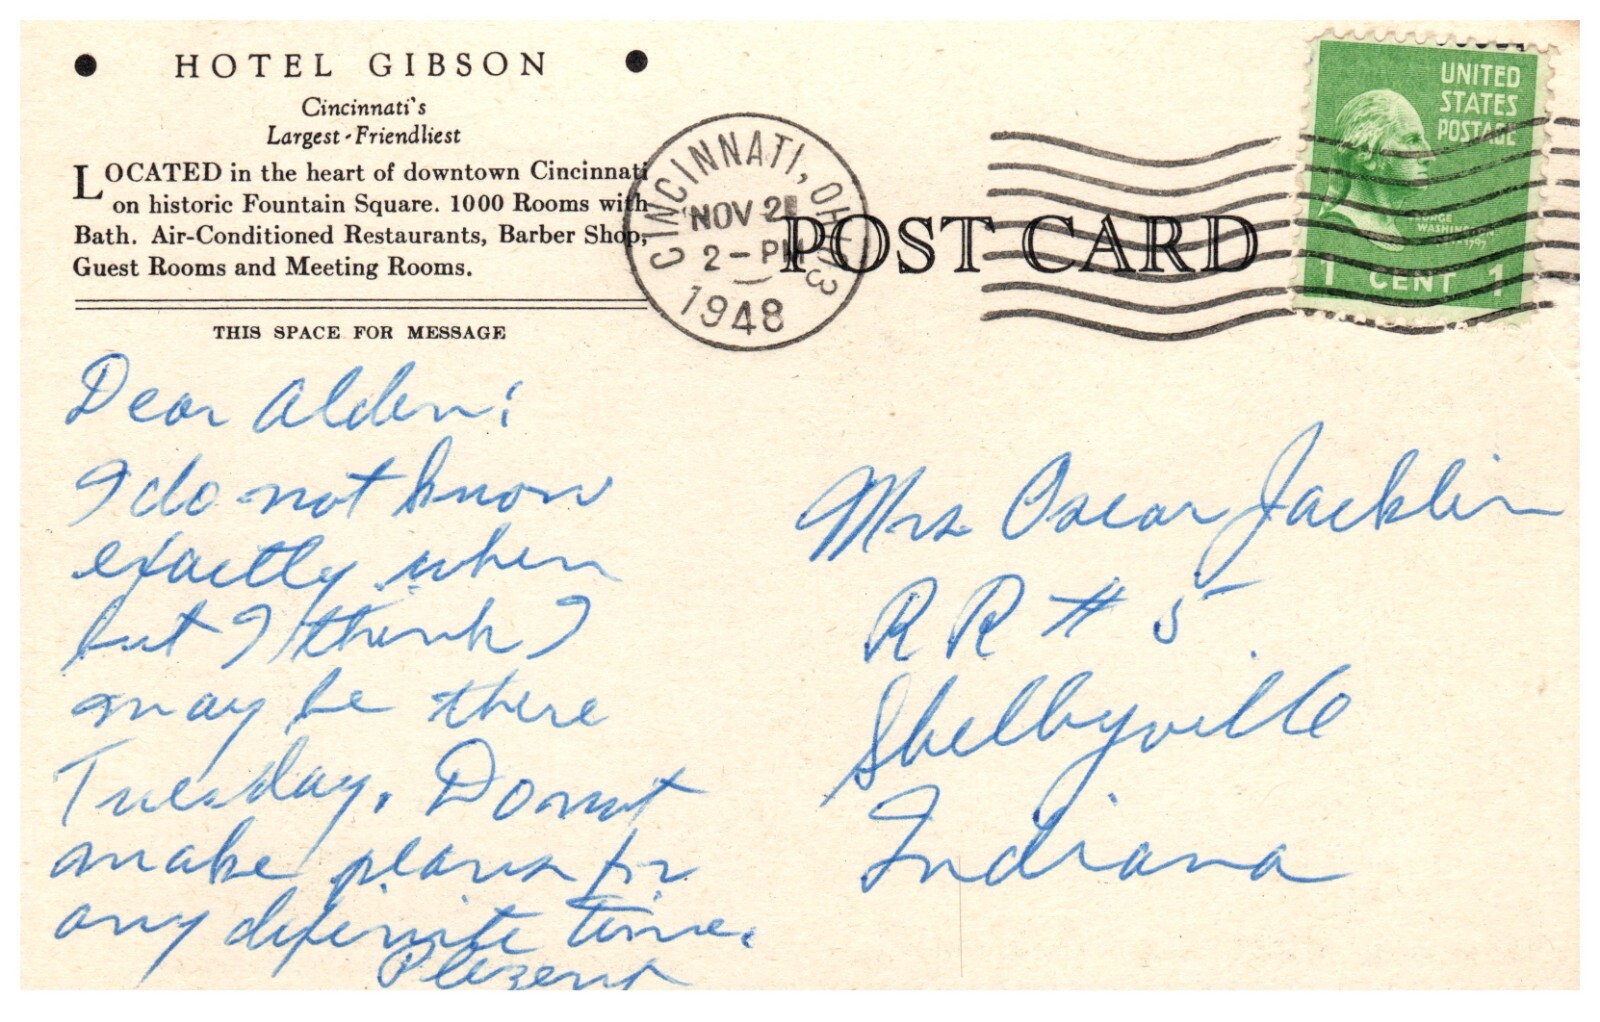 HOTEL GIBSON
Cincinnati's
Largest-Friendliest
LOCATED in the heart of downtown Cincinnati
on historic Fountain Square. 1000 Rooms with
Bath. Air-Conditioned Restaurants, Barber Shop,
Guest Rooms and Meeting Rooms.
THIS SPACE FOR MESSAGE
CINCINNATI, OHIO 3
NOV 2
2-PM
1948
POST CARD
UNITED
STATES
POSTAGE
GEORGE
WASHINGTON
1797
1 CENT 1
Dear Alden:
I do not know
exactly when
but I think I
may be there
Tuesday. Do not
make plans for
any definite time.
Mrs Oscar Jacklin
RR # 5
Shelbyville
Indiana